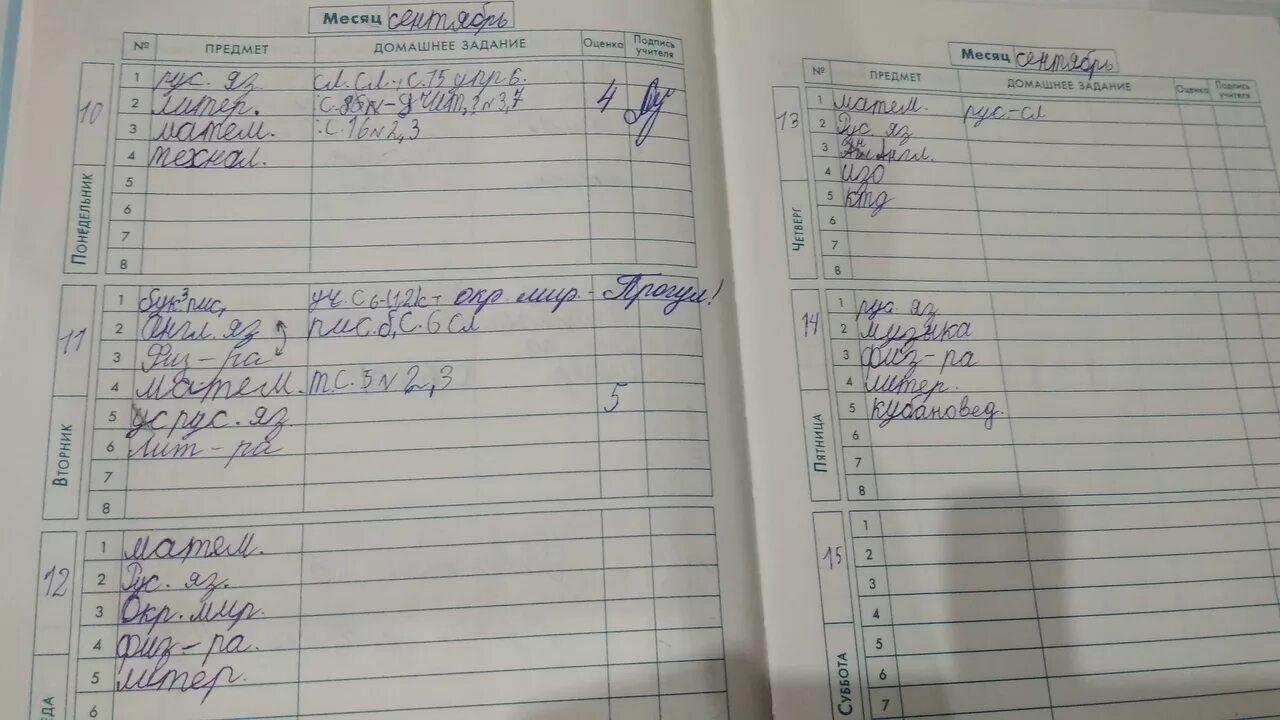 Месяц сентябрь
№ ПРЕДМЕТ ДОМАШНЕЕ ЗАДАНИЕ Оценка Подпись учителя
10 ПОНЕДЕЛЬНИК
1 рус. яз сл. сл., с. 15 упр 6.
2 литер. 4
3 матем. : с. 16 № 2, 3
4 технал.
5
6
7
8
11 ВТОРНИК
1 окр. мир. - Прогул!
2 Англ. яз пис. б, с. 6 сл
3 Физ-ра
4 матем. т. с. 5 № 2, 3
5 рус. яз. 5
6 Лит-ра
7
8
12 ЕДА
1 матем.
2 Рус. яз.
3 Окр. мир.
4 физ-ра.
5 литер.
6
Месяц сентябрь
№ ПРЕДМЕТ ДОМАШНЕЕ ЗАДАНИЕ Оценка Подпись учителя
13 ЧЕТВЕРГ
1 матем. рус-сл
2 Рус. яз
3 Англ.
4 изо
5 ктд
6
7
8
14 ПЯТНИЦА
1 рус. яз
2 музыка
3 физ-ра
4 литер.
5 кубановед.
6
7
8
15 СУББОТА
1
2
3
4
5
6
7